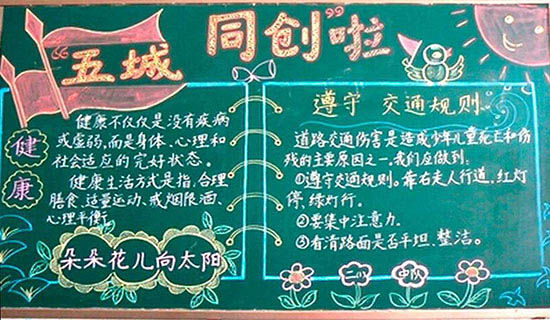 “五城同创”啦
健康
健康不仅仅是没有疾病
或虚弱,而是身体、心理和
社会适应的完好状态。
健康生活方式是指,合理
膳食、适量运动、戒烟限酒、
心理平衡
朵朵花儿向太阳
遵守 交通规则。
道路交通伤害是造成少年儿童死亡和伤
残的主要原因之一,我们应做到:
①遵守交通规则。靠右走人行道,红灯
停,绿灯行。
②要集中注意力。
③看清路面是否平坦、整洁。
二(1) 中队